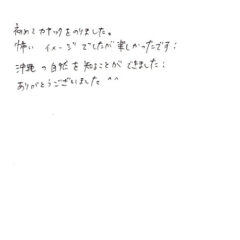 初めてカヤックをのりました。
怖いイメージでしたが楽しかったです!
沖縄の自然を知ることができました!
ありがとうございました ^^